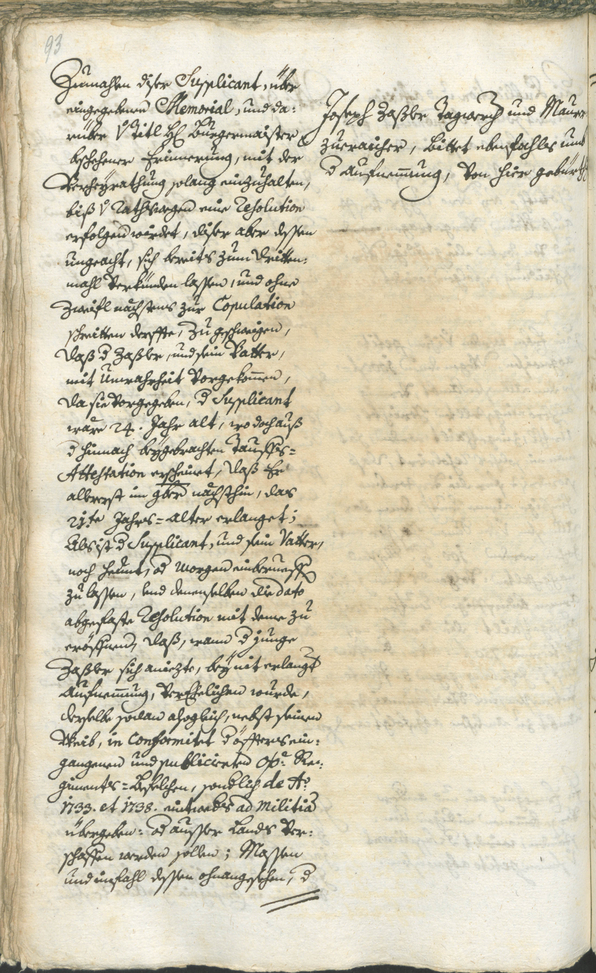 93
Zumahlen diser Supplicant, über
eingegebenen Memorial, und da:
rüber Titl H. Burgermaister
beschehener Erinnerung, mit der
Verheyrathung solang einzuhalten,
biß Rathswegen eine Resolution
erfolgen würdet, diser aber dessen
ungeacht, sich bereits zum dritten:
mahl Verkünden lassen, und ohne
Zweifl nächstens zur Copulation
schreitten derffte, Zugeschweigen,
daß d Zaßler, und sein Vatter,
mit Unwahrheit Vorgekommen,
da sie Vorgegeben, d Supplicant
ware 24. Jahr alt, wo doch auß
d hinnach beygebrachten Tauffs=
Attestation erscheinet, daß Er
allererst im 9ber nächsthin, das
21te Jahrs=alter erlanget;
Als ist d Supplicant, und sein Vatter,
noch heunt, od Morgen einberueffen
zu lassen, und denenselben die dato
abgefaste Resolution mit deme zu
eröffnen, daß, wann d junge
Zaßler sich aniezto, bey nit erlangt
Aufnemung, Verehelichen wurde,
derselbe sodan alsogleich, nebst seinem
Weib, in Conformitet d öffters ein:
gangenen und publicirten Re:
giments=Befelchen, sonderlich de Ao
1733. et 1738. entweders ad Militiam
übergeben: od ausser Lands Ver:
schaffen werden sollen; Massen
und dessen ohnangesehen, d
Joseph Zaßler Tagwerch und Maurer
zueraicher, bittet ebenfahls umb
d Aufnemung, Von hier gebürtig